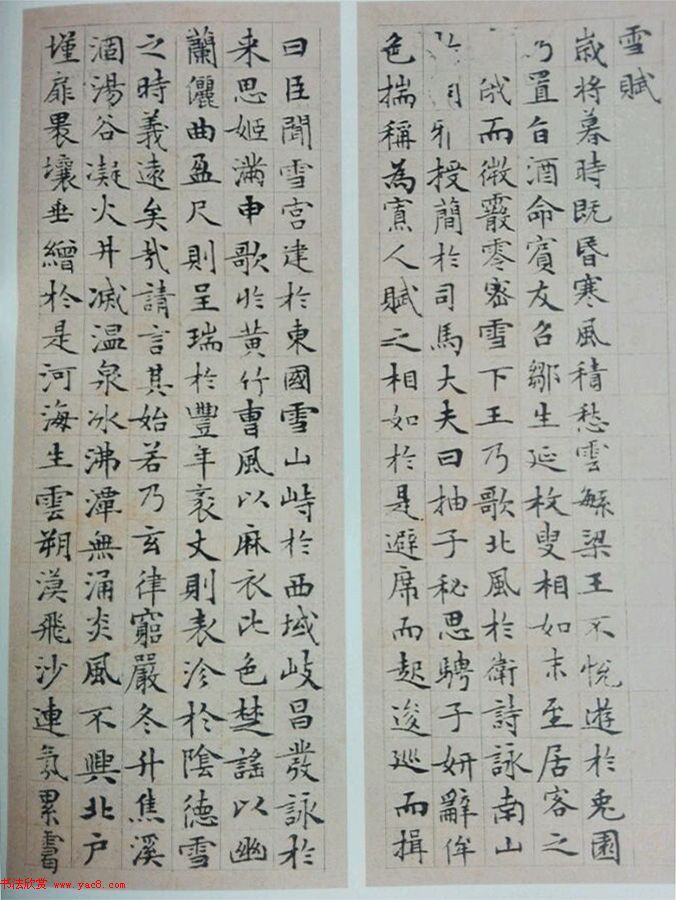 雪賦
歲將暮時既昏寒風積愁雲繁梁王不悅遊於兔園
乃置旨酒命賓友召鄒生延枚叟相如末至居客之
俄而微霰零密雪下王乃歌北風於衛詩詠南山
授簡於司馬大夫曰抽子秘思騁子妍辭侔
色揣稱為寡人賦之相如於是避席而起逡巡而揖
曰臣聞雪宮建於東國雪山峙於西域岐昌發詠於
来思姬滿申歌於黃竹曹風以麻衣比色楚謠以幽
蘭儷曲盈尺則呈瑞於豐年袤丈則表沴於陰德雪
之時義遠矣哉請言其始若乃玄律窮嚴冬升焦溪
涸湯谷凝火井滅温泉冰沸潭無涌炎風不興北户
墐扉壤垂繒於是河海生雲朔漠飛沙連氛累靄
书法欣赏 www.yac8.com